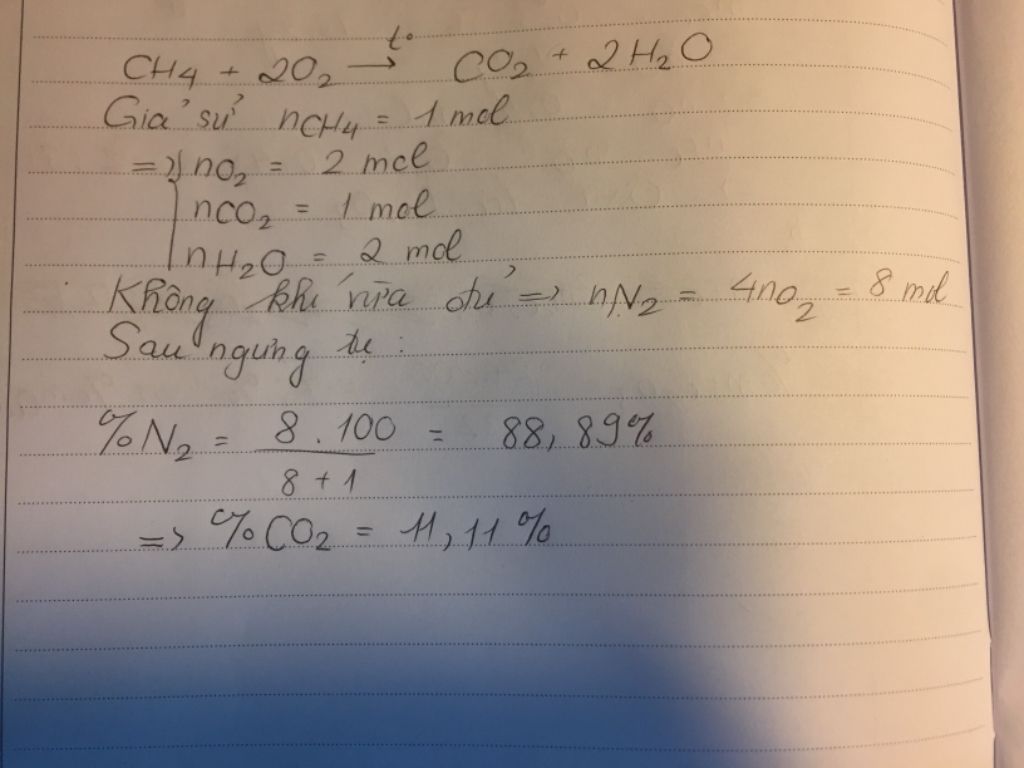 CH4 + 2O2 →t° CO2 + 2H2O
Giả sử nCH4 = 1 mol
=> { nO2 = 2 mol
nCO2 = 1 mol
nH2O = 2 mol
Không khí vừa đủ => nN2 = 4nO2 = 8 mol
Sau ngưng tụ :
%N2 = 8 . 100 / 8 + 1 = 88,89%
=> %CO2 = 11,11%